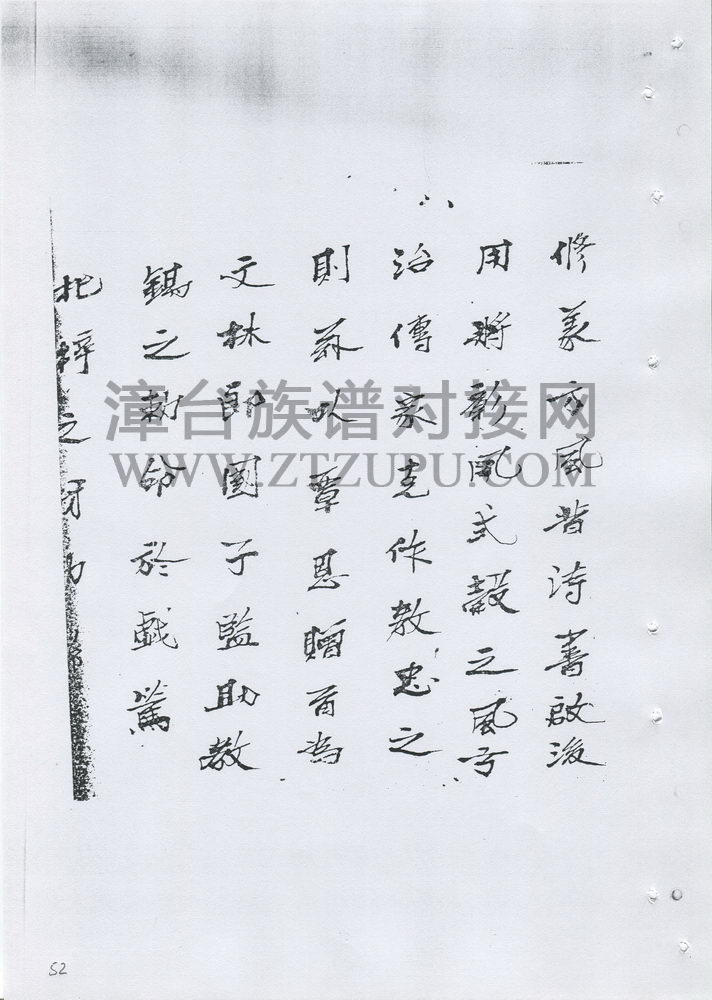 修義方風昔詩書啟後
用將彰風式穀之風芳
治傳家克作教忠之
則茲以覃恩贈爾為
文林郎國子監助教
錫之勅命於戲篤
杞梓之材功
漳台族谱对接网
WWW.ZTZUPU.COM
52